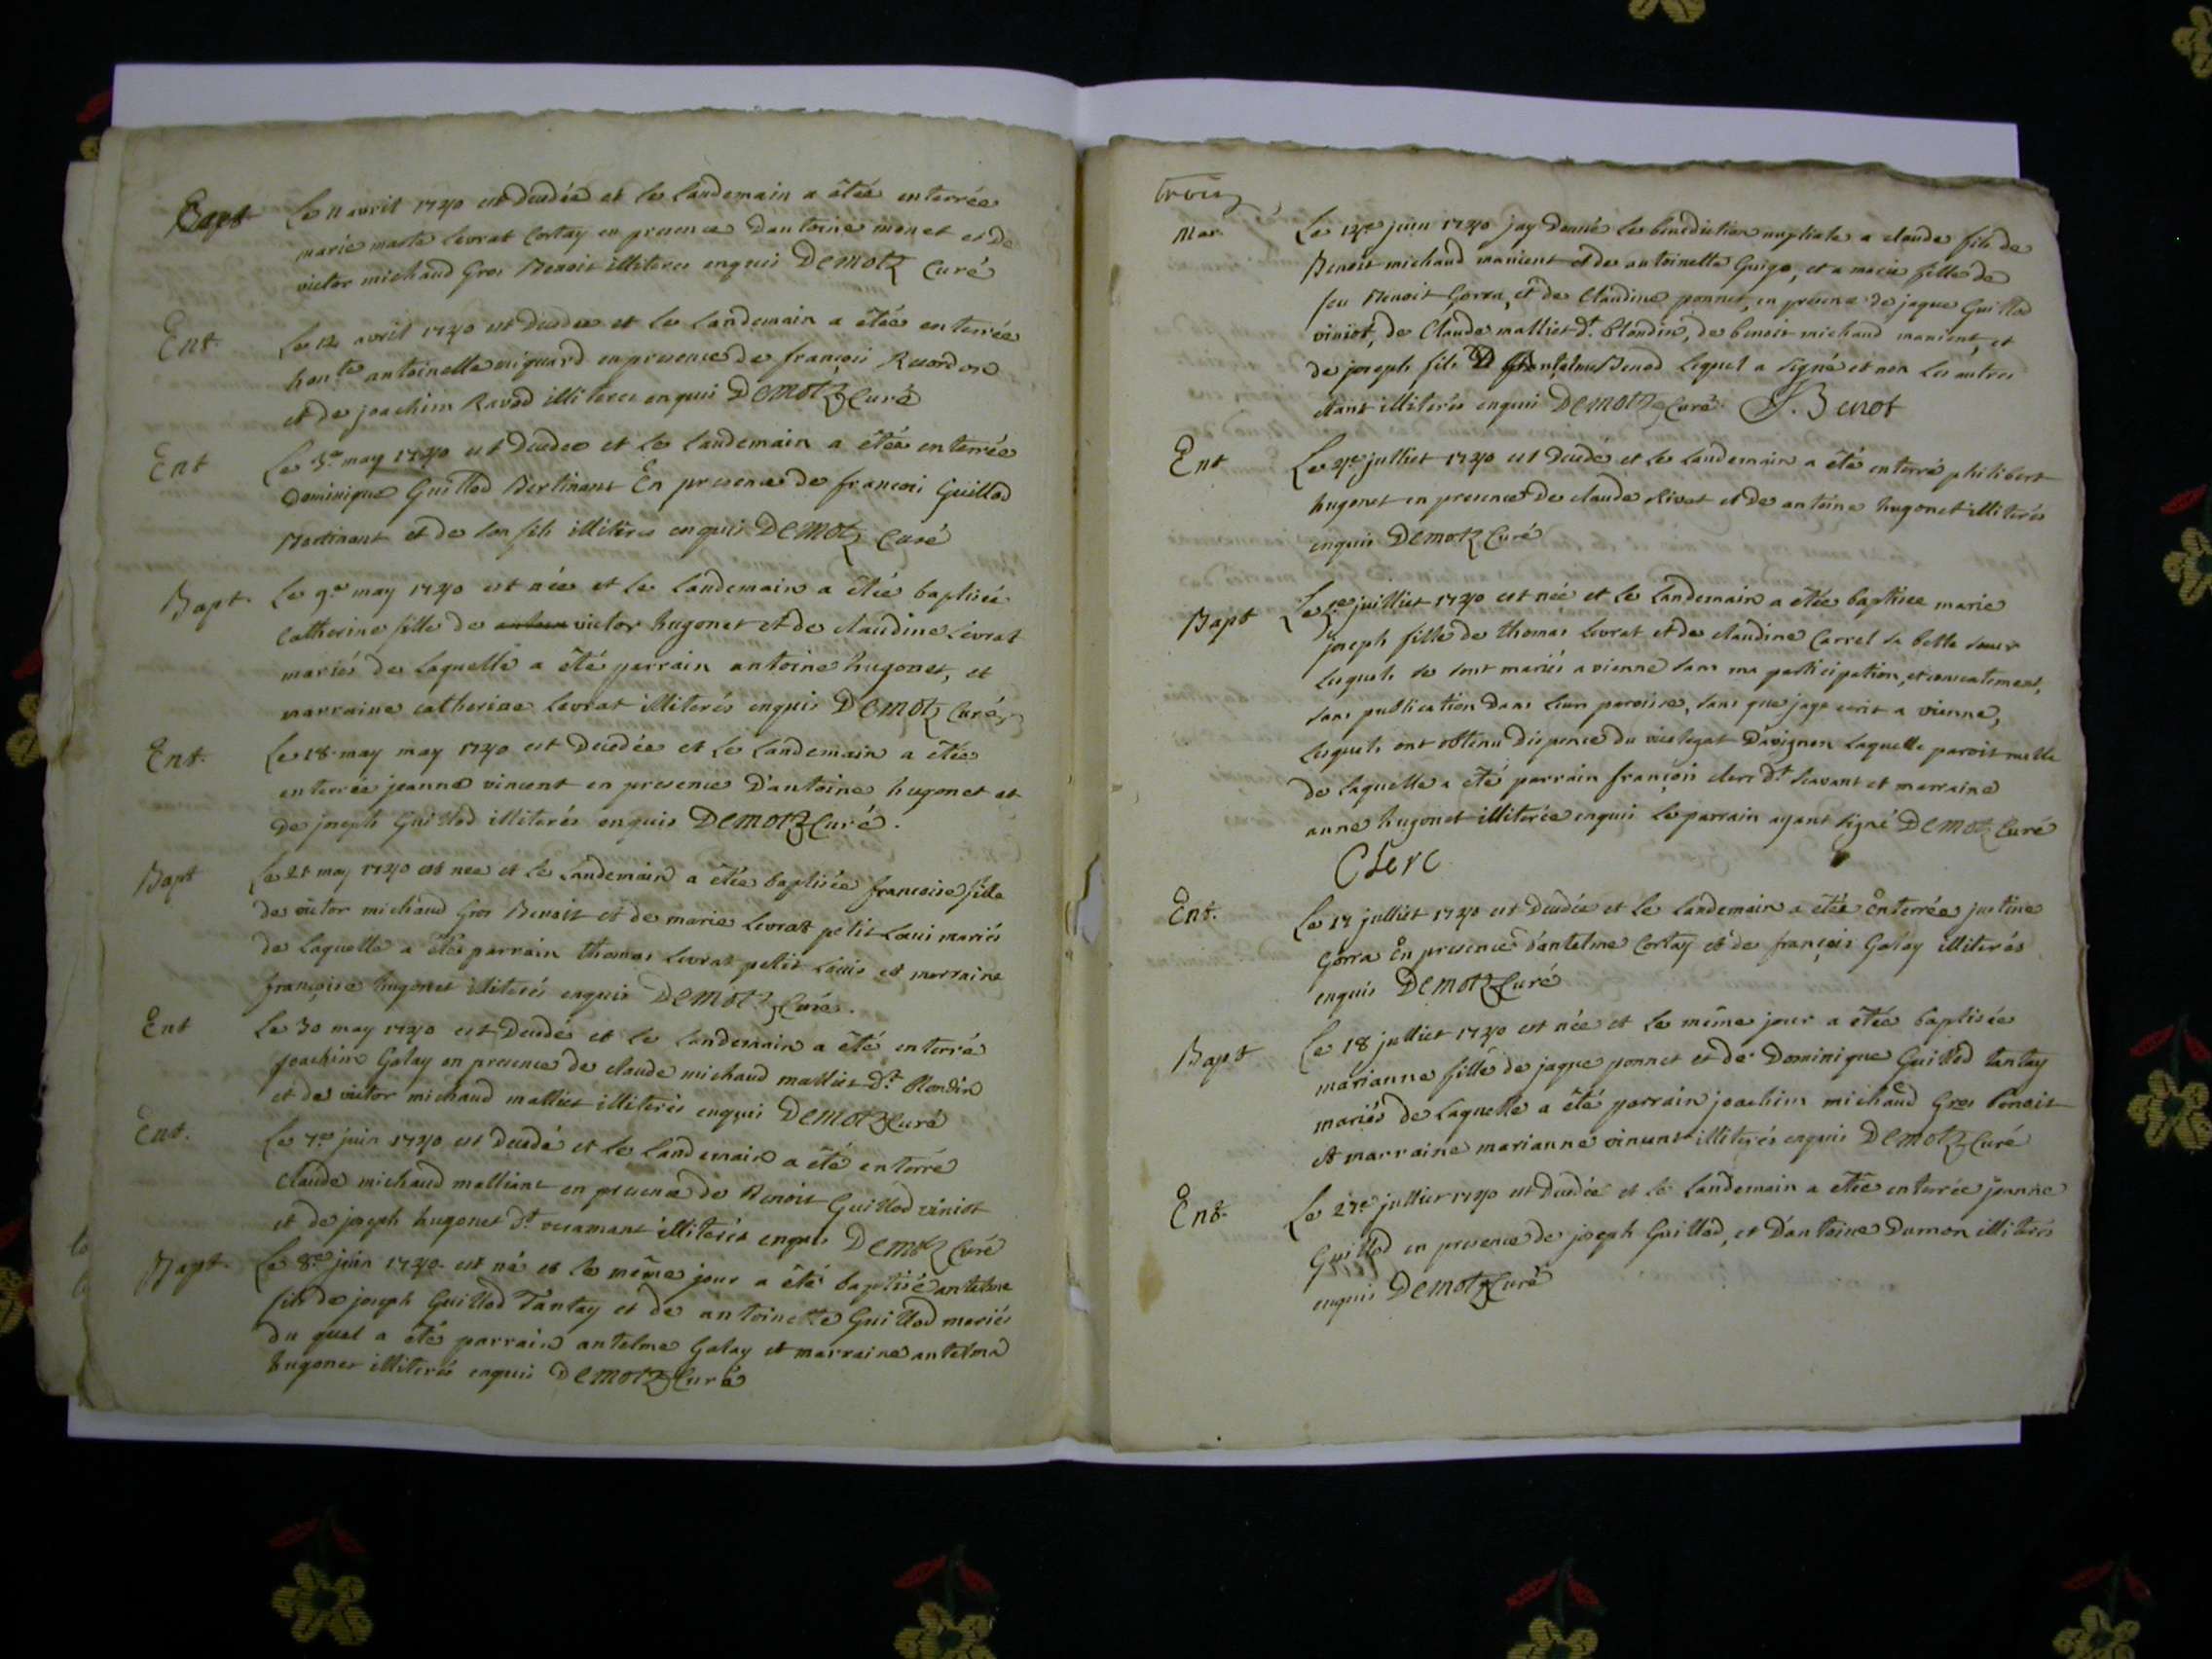 Bapt Le 11 avril 1740 est decedée et le landemain a étée enterrée
marie marte levrat Cortay en presence dantoine monet et de
victor michaud Gros Benoit illiteres enquis Demotz Curé
Ent. Le 12 avril 1740 est decedee et le landemain a étée enterrée
hon.te antoinette miguard en presence de françois
et de joachim Ravod illiteres enquis Demotz Curé
Ent Le 3.e may 1740 est decedee et le landemain a étée enterrée
Dominique Guillod Bertinant En presence de francois Guillod
Bertinant et de son fils illiteres enquis Demotz Curé
Bapt. Le 9.e may 1740 est née et le landemain a étée baptisée
Catherine fille de victor hugonet et de claudine Levrat
mariés de laquelle a été parrain antoine hugonet, et
marraine catherine levrat illiterés enquis Demotz Curé
Ent. Le 18 may may 1740 est decedée et le landemain a étée
enterrée jeanne vincent en presence d'antoine hugonet et
de joseph Guillod illiterés enquis Demotz Curé.
Bapt Le 21 may 1740 est nee et le landemain a étée baptisée francoise fille
de victor michaud Gros Benoit et de marie levrat petit Loui mariés
de laquelle a étée parrain thomas levrat petit Louis et marraine
françoise hugonet illiterés enquis Demotz Curé.
Ent Le 30 may 1740 est decedé et le landemain a été enterré
joachim Galay en presence de claude michaud malliet d.t Blondin
et de victor michaud malliet illiterés enquis Demotz Curé
Ent. Le 7.e juin 1740 est decedé et le landemain a été enterré
Claude michaud malliant en presence de Benoit Guillod viniot
et de joseph hugonet d.t veramant illiterés enquis Demotz Curé
Bapt. Le 8.e juin 1740 est né et le même jour a été baptisé antelme
fils de joseph Guillod Tantay et de antoinette Guillod mariés
du quel a été parrain antelme Galay et marraine antelma
hugonet illiterés enquis Demotz Curé
trois
Mar. Le juin 1740 jay donné la benediction nuptiale a claude fils de
Benoit michaud manient et de antoinette Guigo, et a marie fille de
feu Benoit Gorra, et de Claudine ponnet, en presence de jaque Guillod
viniot, de Claude malliet d.t blondin, de benoit michaud manient, et
de joseph fils D antelme Benod lequel a signé et non les autres
etant illiterés enquis Demotz Curé J. Benot
Ent Le julliet 1740 est decedé et le landemain a été enterré philibert
hugonet en presence de claude Rivat et de antoine hugonet illiterés
enquis Demotz Curé
Bapt Le juilliet 1740 est née et le landemain a étée baptisee marie
joseph fille de thomas levrat et de claudine Carrel sa belle soeur
lesquels se sont mariés a vienne sans ma participation, et
sans publication dans leur paroisse, sans que jaye ecrit a vienne,
lesquels ont obtenu dispence du vicelegat D'avignon laquelle paroit nulle
de laquelle a été parrain françois clerc d.t Savant et marraine
anne hugonet illiterée enquis le parrain ayant signé Demotz Curé
Clerc
Ent. Le 17 julliet 1740 est decedée et le landemain a étée Enterrée justine
Gorra En presence d'antelme Cortay et de françois Galay illiterés
enquis Demotz Curé
Bapt Le 18 julliet 1740 est née et le même jour a étée baptisée
marianne fille de jaque ponnet et de Dominique Guillod tantay
mariés de laquelle a été parrain joachim michaud Gros Benoit
et marraine marianne vincent illiterés enquis Demotz Curé
Ent. Le 27.e julliet 1740 est decedée et le landemain a étée enterrée jeanne
Guillod en presence de joseph Guillod, et D'antoine Dumon illiterés
enquis Demotz Curé